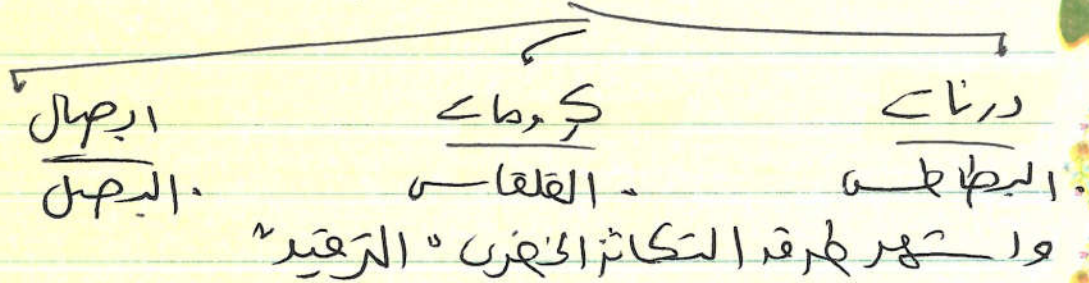 درنات كورمات ابصال
البطاطس . القلقاس . البصل .
واشهر طرق التكاثر الخضري "الترقيد"